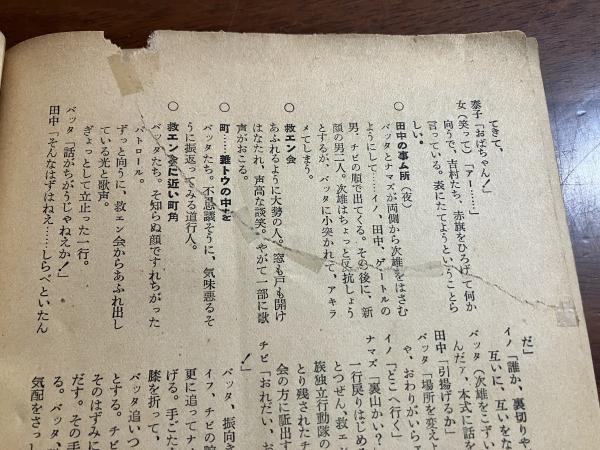 てきて、
泰子「おばちゃん！」
女（笑って）「アー……」
向うで、吉村たち、赤旗をひろげて何か
言っている。表にたてようということら
しい。
○ 田中の事ム所（夜）
バッタとナマズが両側から次雄をはさむ
ようにして……イノ、田中、ゲートルの
男、チビの順で出てくる。その後に、新
顔の男二人。次雄はちょっと反抗しよう
とするが、バッタに小突かれて、アキラ
メてしまう。
○ 救エン会
あふれるように大勢の人。窓も戸も開け
はなたれ、声高な談笑。やがて一部に歌
声がおこる。
○ 町……雑トウの中を
バッタたち。不思議そうに、気味悪るそ
うに振返ってみる道行人。
○ 救エン会に近い町角
バッタたち。そ知らぬ顔ですれちがった
パトロール。
ずっと向うに、救エン会からあふれ出し
ている光と歌声。
ぎょっとして立止った一行。
バッタ「話がちがうじゃねえか！」
田中「そんなはずはねえ……しらべといたん
だ」
イノ「誰か、裏切りや
互いに、互いをな
バッタ（次雄をこずい
んだァ、本式に話を
田中「引揚げるか」
バッタ「場所を変えよ
や、おわりがいらエ
イノ「どこへ行く」
ナマズ「裏山かい？」
一行戻りはじめる
とつぜん、救エ
族独立行動隊の
とり残されたチ
会の方に駈出す
チビ「おれだい、お
！」
バッタ、振向き
イフ、チビの腕
更に追ってナ
げる。手ごた
膝を折って、
バッタ追いつ
とする。チビ
そのはずみに
だす。その手
る。バッタ、
気配をさっし